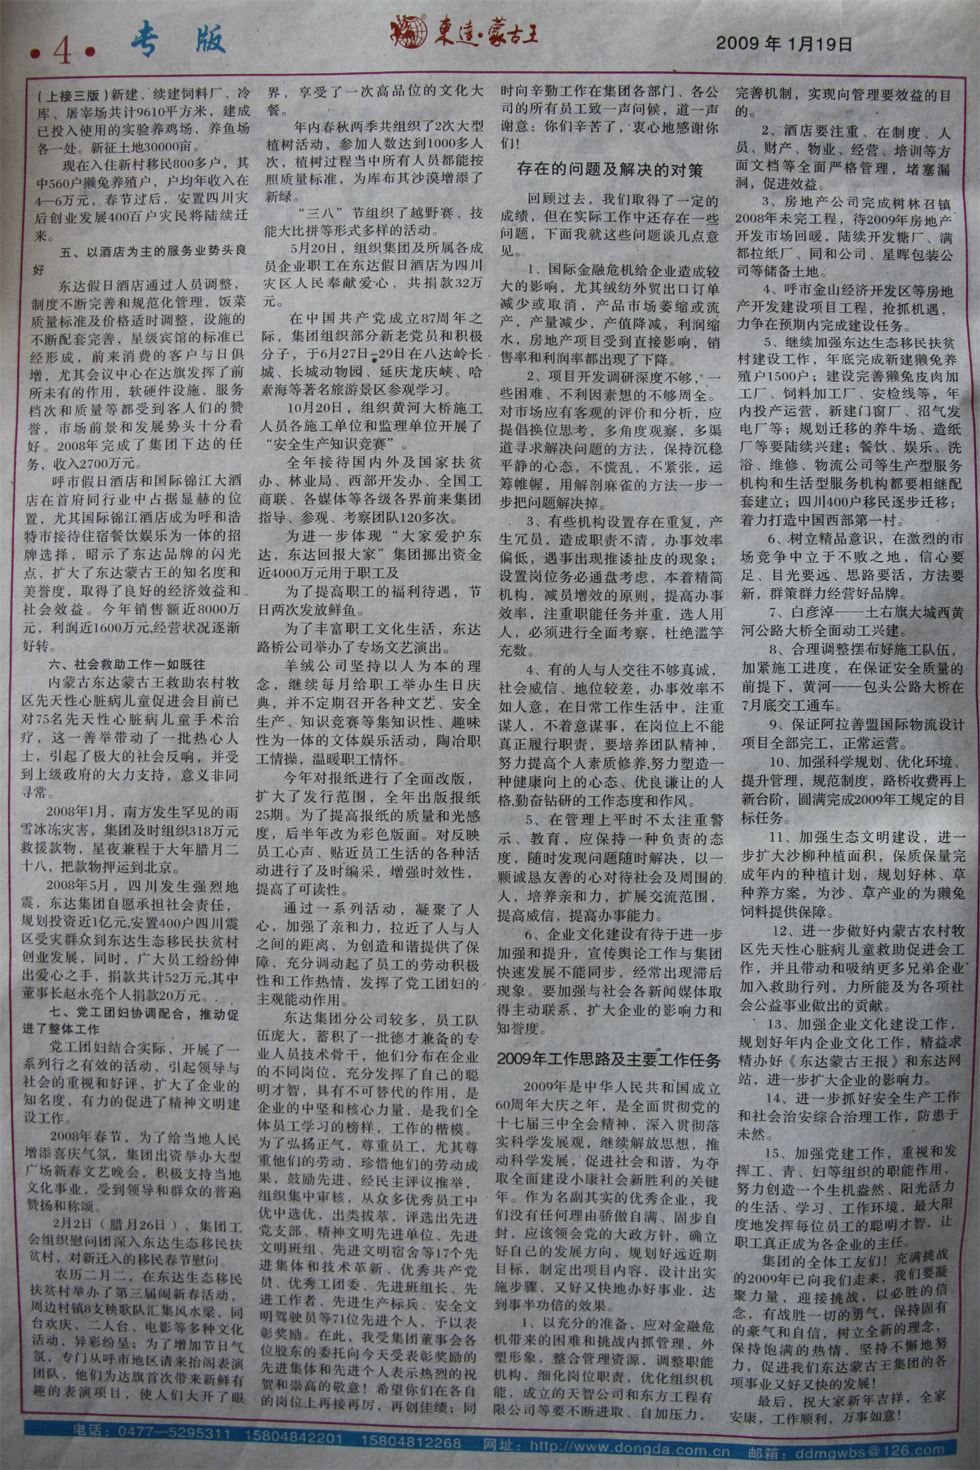 ·4· 专版
東達·蒙古王
2009年1月19日
（上接三版）新建、续建饲料厂、冷
库、屠宰场共计9610平方米，建成
已投入使用的实验养鸡场，养鱼场
各一处。新征土地30000亩。
现在入住新村移民800多户，其
中560户獭兔养殖户，户均年收入在
4—6万元，春节过后，安置四川灾
后创业发展400百户灾民将陆续迁
来。
五、以酒店为主的服务业势头良
好
东达假日酒店通过人员调整，
制度不断完善和规范化管理，饭菜
质量标准及价格适时调整，设施的
不断配套完善，星级宾馆的标准已
经形成，前来消费的客户与日俱
增，尤其会议中心在达旗发挥了前
所未有的作用，软硬件设施，服务
档次和质量等都受到客人们的赞
誉，市场前景和发展势头十分看
好。2008年完成了集团下达的任
务，收入2700万元。
呼市假日酒店和国际锦江大酒
店在首府同行业中占据显赫的位
置，尤其国际锦江酒店成为呼和浩
特市接待住宿餐饮娱乐为一体的招
牌选择，昭示了东达品牌的闪光
点，扩大了东达蒙古王的知名度和
美誉度，取得了良好的经济效益和
社会效益。今年销售额近8000万
元，利润近1600万元,经营状况逐渐
好转。
六、社会救助工作一如既往
内蒙古东达蒙古王救助农村牧
区先天性心脏病儿童促进会目前已
对75名先天性心脏病儿童手术治
疗，这一善举带动了一批热心人
士，引起了极大的社会反响，并受
到上级政府的大力支持，意义非同
寻常。
2008年1月，南方发生罕见的雨
雪冰冻灾害，集团及时组织318万元
救援款物，星夜兼程于大年腊月二
十八，把款物押运到北京。
2008年5月，四川发生强烈地
震，东达集团自愿承担社会责任，
规划投资近1亿元,安置400户四川震
区受灾群众到东达生态移民扶贫村
创业发展，同时，广大员工纷纷伸
出爱心之手，捐款共计52万元,其中
董事长赵永亮个人捐款20万元。
七、党工团妇协调配合，推动促
进了整体工作
党工团妇结合实际，开展了一
系列行之有效的活动，引起领导与
社会的重视和好评，扩大了企业的
知名度，有力的促进了精神文明建
设工作。
2008年春节，为了给当地人民
增添喜庆气氛，集团出资举办大型
广场新春文艺晚会，积极支持当地
文化事业，受到领导和群众的普遍
赞扬和称颂。
2月2日（腊月26日），集团工
会组织慰问团深入东达生态移民扶
贫村，对新迁入的移民春节慰问。
农历二月二，在东达生态移民
扶贫村举办了第三届闹新春活动，
周边村镇8支秧歌队汇集风水梁，同
台欢庆，二人台、电影等多种文化
活动，异彩纷呈；为了增加节日气
氛，专门从呼市地区请来抬阁表演
团队，他们为达旗首次带来新鲜有
趣的表演项目，使人们大开了眼
界，享受了一次高品位的文化大
餐。
年内春秋两季共组织了2次大型
植树活动，参加人数达到1000多人
次，植树过程当中所有人员都能按
照质量标准，为库布其沙漠增添了
新绿。
“三八”节组织了越野赛、技
能大比拼等形式多样的活动。
5月20日，组织集团及所属各成
员企业职工在东达假日酒店为四川
灾区人民奉献爱心，共捐款32万
元。
在中国共产党成立87周年之
际，集团组织部分新老党员和积极
分子，于6月27日-29日在八达岭长
城、长城动物园、延庆龙庆峡、哈
素海等著名旅游景区参观学习。
10月20日，组织黄河大桥施工
人员各施工单位和监理单位开展了
“安全生产知识竞赛”。
全年接待国内外及国家扶贫
办、林业局、西部开发办、全国工
商联、各媒体等各级各界前来集团
指导、参观、考察团队120多次。
为进一步体现“大家爱护东
达，东达回报大家”集团挪出资金
近4000万元用于职工及
为了提高职工的福利待遇，节
日两次发放鲜鱼。
为了丰富职工文化生活，东达
路桥公司举办了专场文艺演出。
羊绒公司坚持以人为本的理
念，继续每月给职工举办生日庆
典，并不定期召开各种文艺、安全
生产、知识竞赛等集知识性、趣味
性为一体的文体娱乐活动，陶冶职
工情操，温暖职工情怀。
今年对报纸进行了全面改版，
扩大了发行范围，全年出版报纸
25期。为了提高报纸的质量和光感
度，后半年改为彩色版面。对反映
员工心声、贴近员工生活的各种活
动进行了及时编采，增强时效性，
提高了可读性。
通过一系列活动，凝聚了人
心，加强了亲和力，拉近了人与人
之间的距离，为创造和谐提供了保
障，充分调动起了员工的劳动积极
性和工作热情，发挥了党工团妇的
主观能动作用。
东达集团分公司较多，员工队
伍庞大，蓄积了一批德才兼备的专
业人员技术骨干，他们分布在企业
的不同岗位，充分发挥了自己的聪
明才智，具有不可替代的作用，是
企业的中坚和核心力量，是我们全
体员工学习的榜样，工作的楷模。
为了弘扬正气，尊重员工，尤其尊
重他们的劳动，珍惜他们的劳动成
果，鼓励先进，经民主评议推举，
组织集中审核，从众多优秀员工中
优中选优，出类拔萃，评选出先进
党支部、精神文明先进单位、先进
文明班组、先进文明宿舍等17个先
进集体和技术革新、优秀共产党
员、优秀工团委、先进班组长、先
进工作者、先进生产标兵、安全文
明驾驶员等71位先进个人，予以表
彰奖励。在此，我受集团董事会各
位股东的委托向今天受表彰奖励的
先进集体和先进个人表示热烈的祝
贺和崇高的敬意！希望你们在各自
的岗位上再接再厉，再创佳绩；同
时向辛勤工作在集团各部门、各公
司的所有员工致一声问候，道一声
谢意：你们辛苦了，衷心地感谢你
们！
存在的问题及解决的对策
回顾过去，我们取得了一定的
成绩，但在实际工作中还存在一些
问题，下面我就这些问题谈几点意
见。
1、国际金融危机给企业造成较
大的影响，尤其绒纺外贸出口订单
减少或取消，产品市场萎缩或流
产，产量减少，产值降减，利润缩
水，房地产项目受到直接影响，销
售率和利润率都出现了下降。
2、项目开发调研深度不够，一
些困难、不利因素想的不够周全。
对市场应有客观的评价和分析，应
提倡换位思考，多角度观察，多渠
道寻求解决问题的方法，保持沉稳
平静的心态，不慌乱，不紧张，运
筹帷幄，用解剖麻雀的方法一步一
步把问题解决掉。
3、有些机构设置存在重复，产
生冗员，造成职责不清，办事效率
偏低，遇事出现推诿扯皮的现象；
设置岗位务必通盘考虑，本着精简
机构，减员增效的原则，提高办事
效率，注重职能任务并重，选人用
人，必须进行全面考察，杜绝滥竽
充数。
4、有的人与人交往不够真诚，
社会威信、地位较差，办事效率不
如人意，在日常工作生活中，注重
谋人，不着意谋事，在岗位上不能
真正履行职责，要培养团队精神，
努力提高个人素质修养,努力塑造一
种健康向上的心态、优良谦让的人
格,勤奋钻研的工作态度和作风。
5、在管理上平时不太注重警
示、教育，应保持一种负责的态
度，随时发现问题随时解决，以一
颗诚恳友善的心对待社会及周围的
人，培养亲和力，扩展交流范围，
提高威信，提高办事能力。
6、企业文化建设有待于进一步
加强和提升，宣传舆论工作与集团
快速发展不能同步，经常出现滞后
现象。要加强与社会各新闻媒体取
得主动联系，扩大企业的影响力和
知誉度。
2009年工作思路及主要工作任务
2009年是中华人民共和国成立
60周年大庆之年，是全面贯彻党的
十七届三中全会精神，深入贯彻落
实科学发展观，继续解放思想，推
动科学发展，促进社会和谐，为夺
取全面建设小康社会新胜利的关键
年。作为名副其实的优秀企业，我
们没有任何理由骄傲自满、固步自
封，应该领会党的大政方针，确立
好自己的发展方向，规划好远近期
目标，制定出项目内容，设计出实
施步骤，又好又快地办好事业，达
到事半功倍的效果。
1、以充分的准备，应对金融危
机带来的困难和挑战内抓管理，外
塑形象，整合管理资源，调整职能
机构，细化岗位职责，优化组织机
能，成立的天智公司和东方工程有
限公司等要不断进取、自加压力，
完善机制，实现向管理要效益的目
的。
2、酒店要注重、在制度、人
员、财产、物业、经营、培训等方
面文档等全面严格管理，堵塞漏
洞，促进效益。
3、房地产公司完成树林召镇
2008年未完工程，待2009年房地产
开发市场回暖，陆续开发糖厂、满
都拉纸厂、同和公司、星晖包装公
司等储备土地。
4、呼市金山经济开发区等房地
产开发建设项目工程，抢抓机遇，
力争在预期内完成建设任务。
5、继续加强东达生态移民扶贫
村建设工作，年底完成新建獭兔养
殖户1500户；建设完善獭兔皮肉加
工厂、饲料加工厂、安检线等，年
内投产运营，新建门窗厂、沼气发
电厂等；规划迁移的养牛场、造纸
厂等要陆续兴建；餐饮、娱乐、洗
浴、维修、物流公司等生产型服务
机构和生活型服务机构都要相继配
套建立；四川400户移民逐步迁移；
着力打造中国西部第一村。
6、树立精品意识，在激烈的市
场竞争中立于不败之地，信心要
足、目光要远、思路要活，方法要
新，群策群力经营好品牌。
7、白彦淖——土右旗大城西黄
河公路大桥全面动工兴建。
8、合理调整摆布好施工队伍，
加紧施工进度，在保证安全质量的
前提下，黄河——包头公路大桥在
7月底交工通车。
9、保证阿拉善盟国际物流设计
项目全部完工，正常运营。
10、加强科学规划、优化环境、
提升管理，规范制度，路桥收费再上
新台阶，圆满完成2009年工规定的目
标任务。
11、加强生态文明建设，进一
步扩大沙柳种植面积，保质保量完
成年内的种植计划，规划好林、草
种养方案，为沙、草产业的为獭兔
饲料提供保障。
12、进一步做好内蒙古农村牧
区先天性心脏病儿童救助促进会工
作，并且带动和吸纳更多兄弟企业
加入救助行列，力所能及为各项社
会公益事业做出的贡献。
13、加强企业文化建设工作，
规划好年内企业文化工作，精益求
精办好《东达蒙古王报》和东达网
站，进一步扩大企业的影响力。
14、进一步抓好安全生产工作
和社会治安综合治理工作，防患于
未然。
15、加强党建工作，重视和发
挥工、青、妇等组织的职能作用，
努力创造一个生机盎然、阳光活力
的生活、学习、工作环境，最大限
度地发挥每位员工的聪明才智，让
职工真正成为各企业的主任。
集团的全体工友们！充满挑战
的2009年已向我们走来，我们要凝
聚力量，迎接挑战，以必胜的信
念，有战胜一切的勇气，保持固有
的豪气和自信，树立全新的理念，
保持饱满的热情，坚持不懈地努
力，促进我们东达蒙古王集团的各
项事业又好又快的发展！
最后，祝大家新年吉祥，全家
安康，工作顺利，万事如意！
电话：0477—5295311 15804842201 15804812268 网址：http://www.dongda.com.cn 邮箱：ddmgwbs@126.com